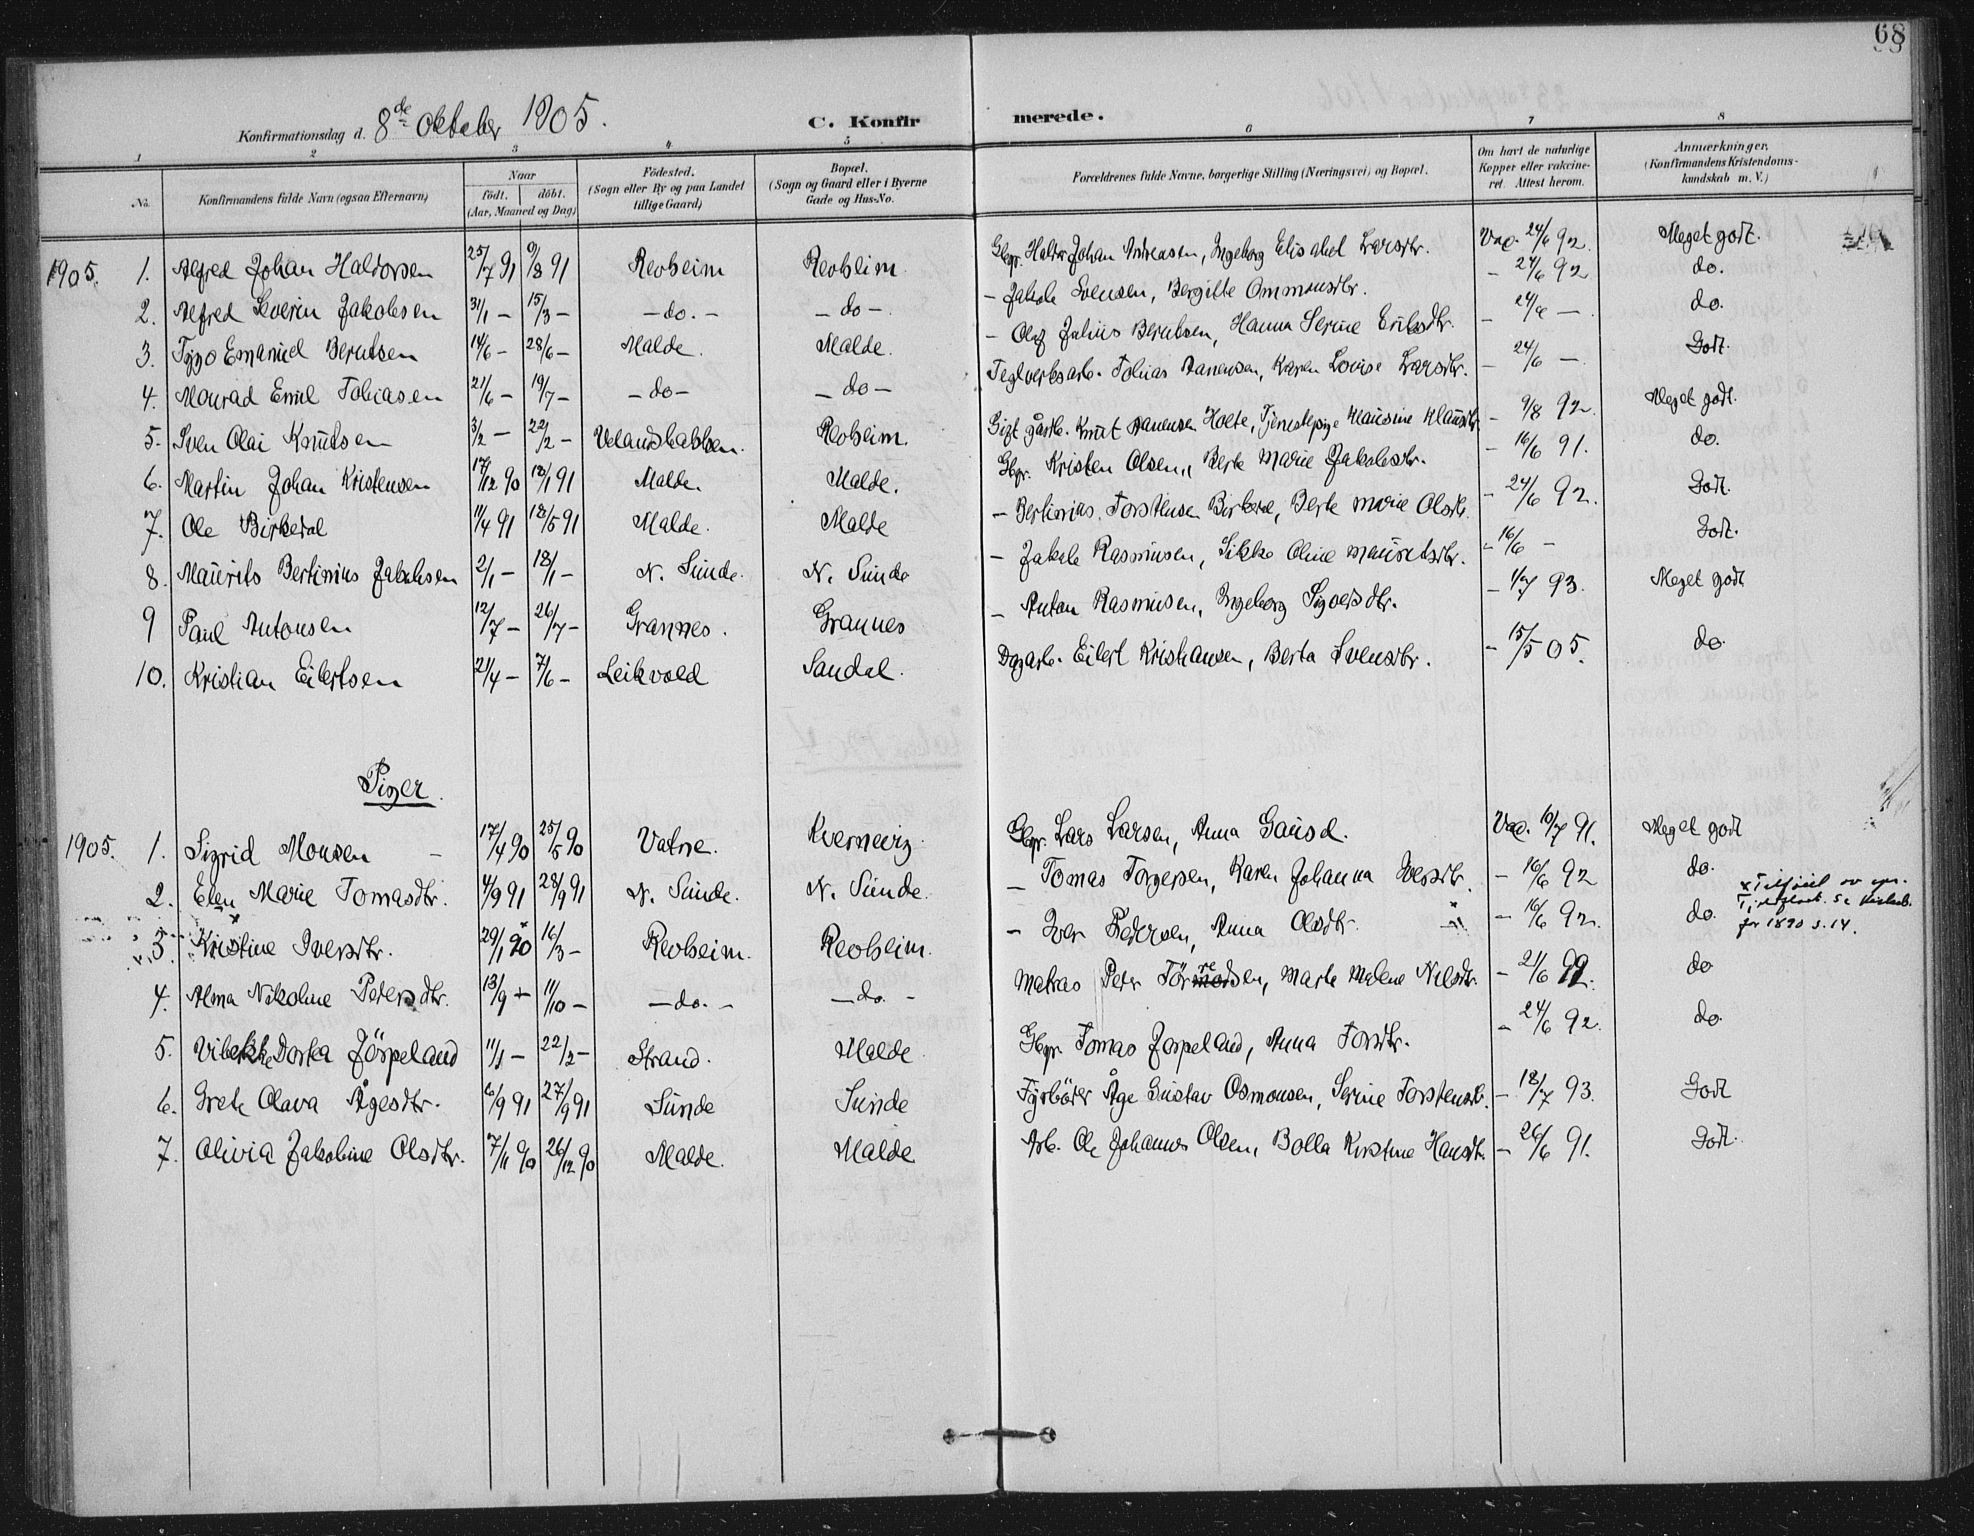 68
Konfirmationsdag d. 8de oktober 1905. C. Konfirmerede.
1 2 3 4 5 6 7 8
No. Konfirmandens fulde Navn (ogsaa Efternavn) Naar födt. döbt. (Aar, Maaned og Dag) Födested. (Sogn eller By og paa Landet tillige Gaard) Bopæl. (Sogn og Gaard eller i Byerne Gade og Hus-No. Forældrenes fulde Navne, borgerlige Stilling (Næringsvei) og Bopæl. Om havt de naturlige Kopper eller vakcineret. Attest herom. Anmærkninger, (Konfirmandens Kristendomskundskab m. V.)
1905. 1. Alfred Johan Haldorsen 25/7 91 9/8 91 Revheim Revheim. Gbr. Haldor Johan Andreasen, Ingeborg Elisabet Larsdtr. Vac. 24/6 92. Meget godt.
2. Alfred Severin Jakobsen 31/1 – 15/3 – – do. – – do – – Jakob Svensen, Bergitte Ommundsdtr. – 24/6 92 do.
3. Tygo Emanuel Berntsen 14/6 – 28/6 – Malde. Malde. – Olaf Julius Berntsen, Hanna Serine Eriksdtr. – 24/6 – do.
4. Monrad Emil Tobiasen 21/6 – 19/7 – – do – – do – Teglverksarb. Tobias Aanensen, Karen Lovise Larsdtr. – 24/6 – Godt.
5. Sven Olai Knutsen 3/2 – 22/2 – Revheim. Gift gårdb. Knut Aanensen Holte, Tjenestepige Klausine Klausdtr. – 9/8 92. Meget godt.
6. Martin Johan Kristensen 17/12 90 18/1 91 Malde. Malde. Gbr. Kristen Olsen, Berte Marie Jakobsdtr. – 16/6 91. do.
7. Ole Birkedal 11/4 91 18/5 91 Malde. Malde – Bertinius Torstensen Birkedal, Berte Marie Olsdtr. – 24/6 92. Godt.
8. Maurits Bertinius Jakobsen 2/1 – 18/1 – N. Sunde. N. Sunde – Jakob Rasmusen, Sikke Oline Mauritsdtr. – 16/6 – Godt.
9 Paul Antonsen 12/7 – 26/7 – Grannes. Grannes – Anton Rasmusen, Ingeborg Sigversdtr. – 1/7 93. Meget godt
10. Kristian Eilertsen 21/4 – 7/6 – Leikvold Sandal. Dagarb. Eilert Kristiansen, Berta Svensdtr. – 15/5 05. do.
Piger.
1905. 1. Sigrid Monsen – 17/4 90 25/5 90 Vatne. Kvernevig. Gbr. Lars Larsen, Anna Gausel. Vac. 16/7 91. Meget godt
2. Elen Marie Tomasdtr. 4/9 91 28/9 91 N. Sunde. N. Sunde. – Tomas Torgersen, Karen Johanna Iversdtr. – 16/6 92 do.
3. Kristine Iversdtr. 29/1 90 x 16/3 – Revheim. Revheim. – Iver Pedersen, Anna Olsdtr. – 16/6 92. do. x Tilføiet av
for 1890 s. 14.
4. Alma Nikoline Petersdtr. 13/9 – 11/10 – – do. – – do. – Matros Peter Törresen, Marte Malene Nilsdtr. – 21/6 92. do
5. Vibekke Dorta Jörpeland 11/1 – 22/2 – Strand. Malde Gbr. Tomas Jörpeland, Anna Torsdtr. – 24/6 92. do
6. Grete Olava Ågesdtr. 6/9 91 27/9 91 Sunde Sunde Fyrböter Åge Gustav Osmonsen, Serine Torstensdtr. – 18/7 93. Godt
7. Olivia Jakobine Olsdtr. 7/11 90 26/12 90 Malde. Malde Arb. Ole Johannes Olsen, Bolla Kirstine Hansdtr. – 26/6 91. Godt.